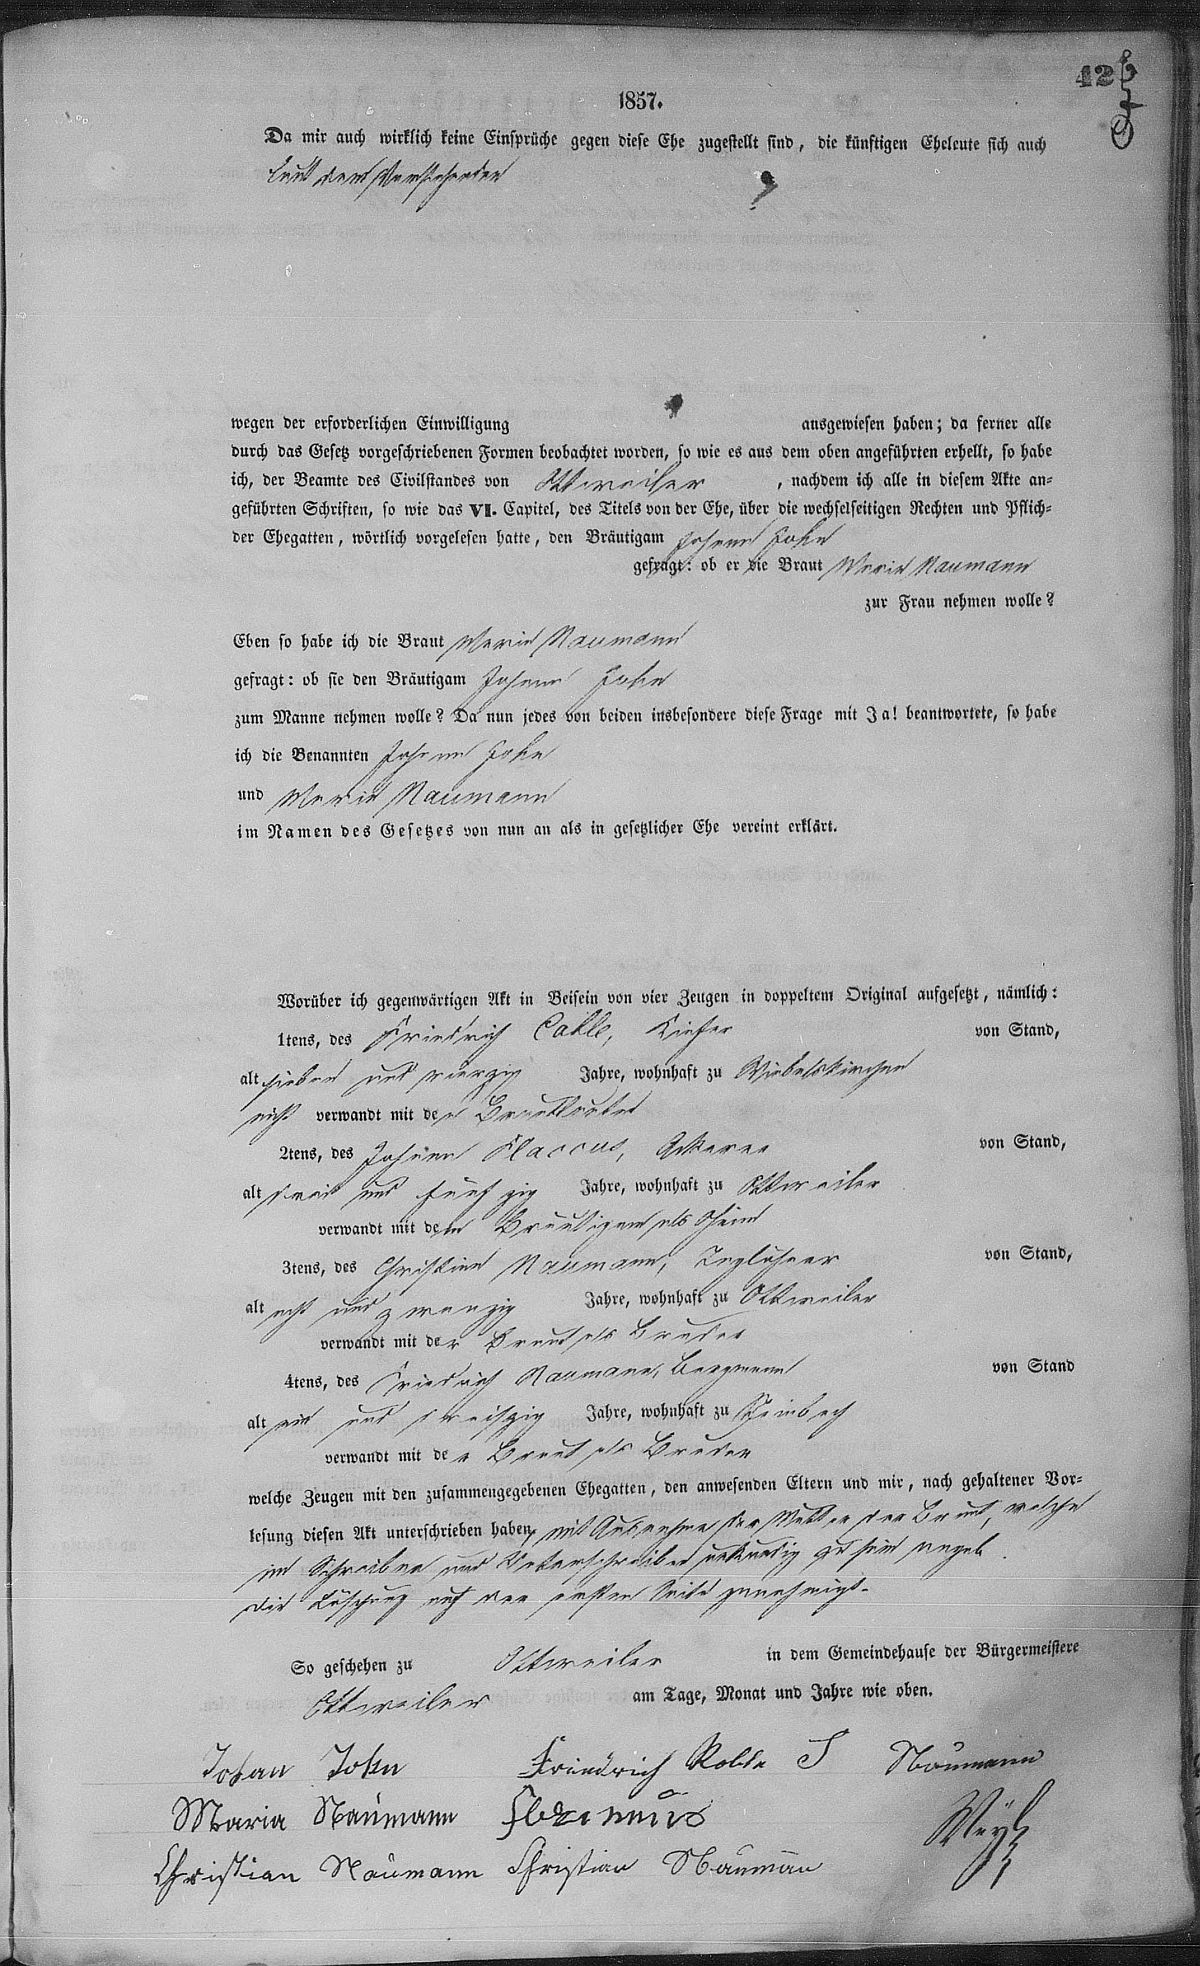 42
1857.
Da mir auch wirklich keine Einsprüche gegen diese Ehe zugestellt sind, die künftigen Eheleute sich auch
laut dem Vorstehenden
wegen der erforderlichen Einwilligung ausgewiesen haben; da ferner alle
durch das Gesetz vorgeschriebenen Formen beobachtet worden, so wie es aus dem oben angeführten erhellt, so habe
ich, der Beamte des Civilstandes von Ottweiler , nachdem ich alle in diesem Akte an-
geführten Schriften, so wie das VI. Capitel, des Titels von der Ehe, über die wechselseitigen Rechten und Pflich-
der Ehegatten, wörtlich vorgelesen hatte, den Bräutigam Johann John
gefragt: ob er die Braut Maria Naumann
zur Frau nehmen wolle?
Eben so habe ich die Braut Maria Naumann
gefragt: ob sie den Bräutigam Johann John
zum Manne nehmen wolle? Da nun jedes von beiden insbesondere diese Frage mit Ja! beantwortete, so habe
ich die Benannten Johann John
und Maria Naumann
im Namen des Gesetzes von nun an als in gesetzlicher Ehe vereint erklärt.
Worüber ich gegenwärtigen Akt in Beisein von vier Zeugen in doppeltem Original aufgesetzt, nämlich:
1tens, des Friedrich Kiefer von Stand,
alt sieben und vierzig Jahre, wohnhaft zu Wiebelskirchen
nicht verwandt mit den Brautleuten
2tens, des Johann Flaccus, Ackerer von Stand,
alt drei und fünfzig Jahre, wohnhaft zu Ottweiler
verwandt mit dem Bräutigam als Oheim
3tens, des Christian Naumann, Taglöhner von Stand,
alt acht und zwanzig Jahre, wohnhaft zu Ottweiler
verwandt mit der Braut als Bruder
4tens, des Friedrich Naumann, Bergmann von Stand
alt ein und dreiszig Jahre, wohnhaft zu Steinbach
verwandt mit der Braut als Bruder
welche Zeugen mit den zusammengegebenen Ehegatten, den anwesenden Eltern und mir, nach gehaltener Vor-
lesung diesen Akt unterschrieben haben, mit Ausnahme der Mutter der Braut, welche
im Schreiben und Unterschreiben unkundig zu sein angab.
Die Löschung auf der ersten Seite genehmigt.
So geschehen zu Ottweiler in dem Gemeindehause der Bürgermeistere
Ottweiler am Tage, Monat und Jahre wie oben.
Johan John Friedrich Naumann
Maria Naumann
Christian Naumann Christian Nauman